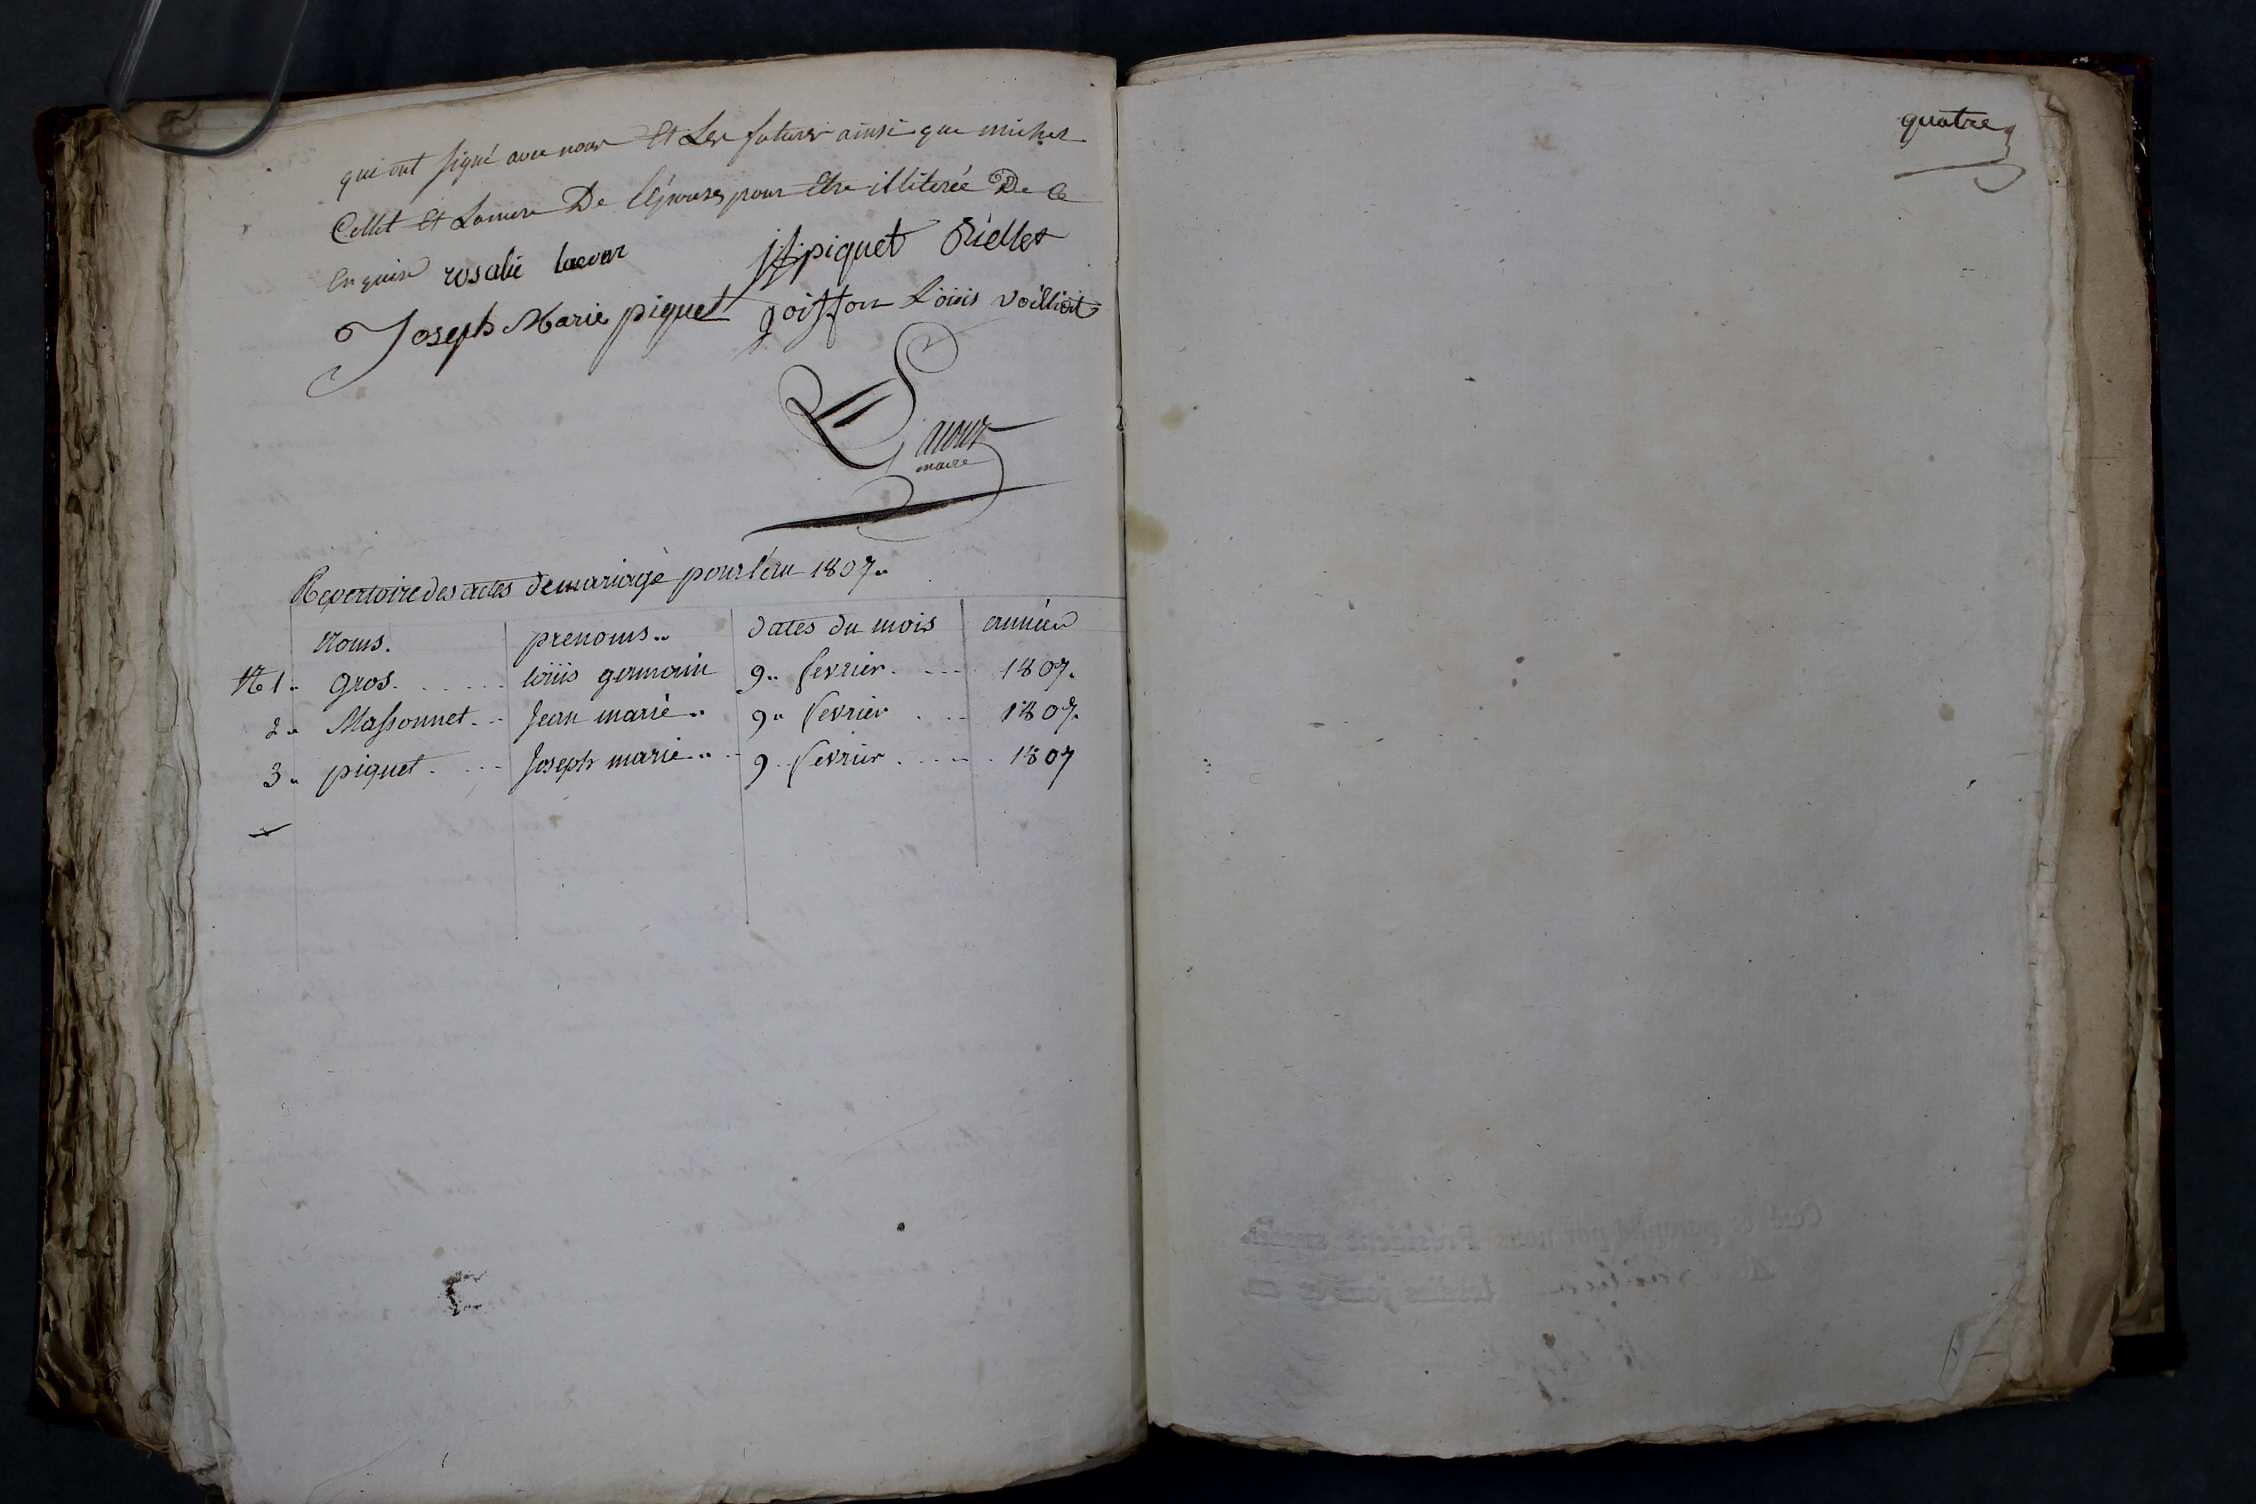 qui ont signé avec nous Et Les futurs ainsi que michel
Collet Et Lamere De l'épouse pour Etre illiterée De Ce
Enquis rosalie lacour jfpiquet Riellet
Joseph Marie piquet goiffon Louis voilliat
maire
Repertoire des actes de mariage pour l'an 1807.
Noms. prenoms.. dates du mois année
No 1.. gros. louis germain 9.. fevrier. 1807.
2.. Massonnet. Jean marie.. 9.. fevrier 1807.
3.. piquet. Joseph marie.. 9.. fevrier 1807
quatre